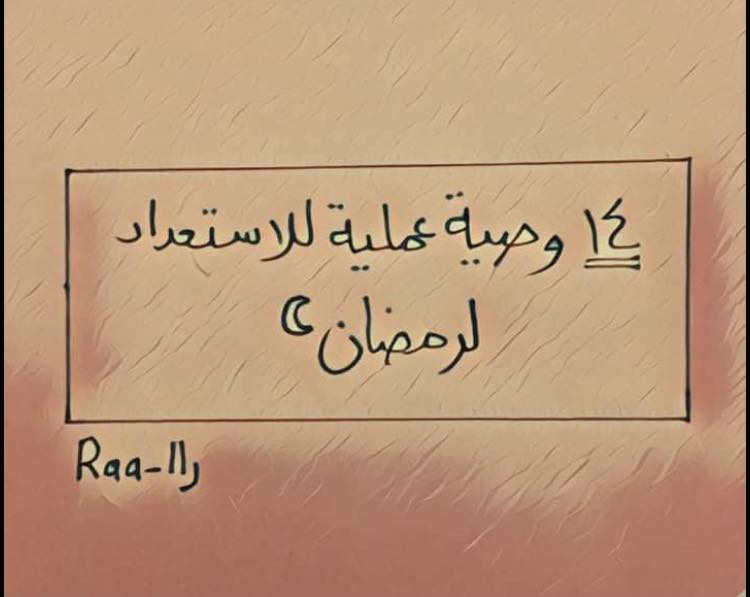 ١٤ وصية عملية للاستعداد
لرمضان
Raa-اار